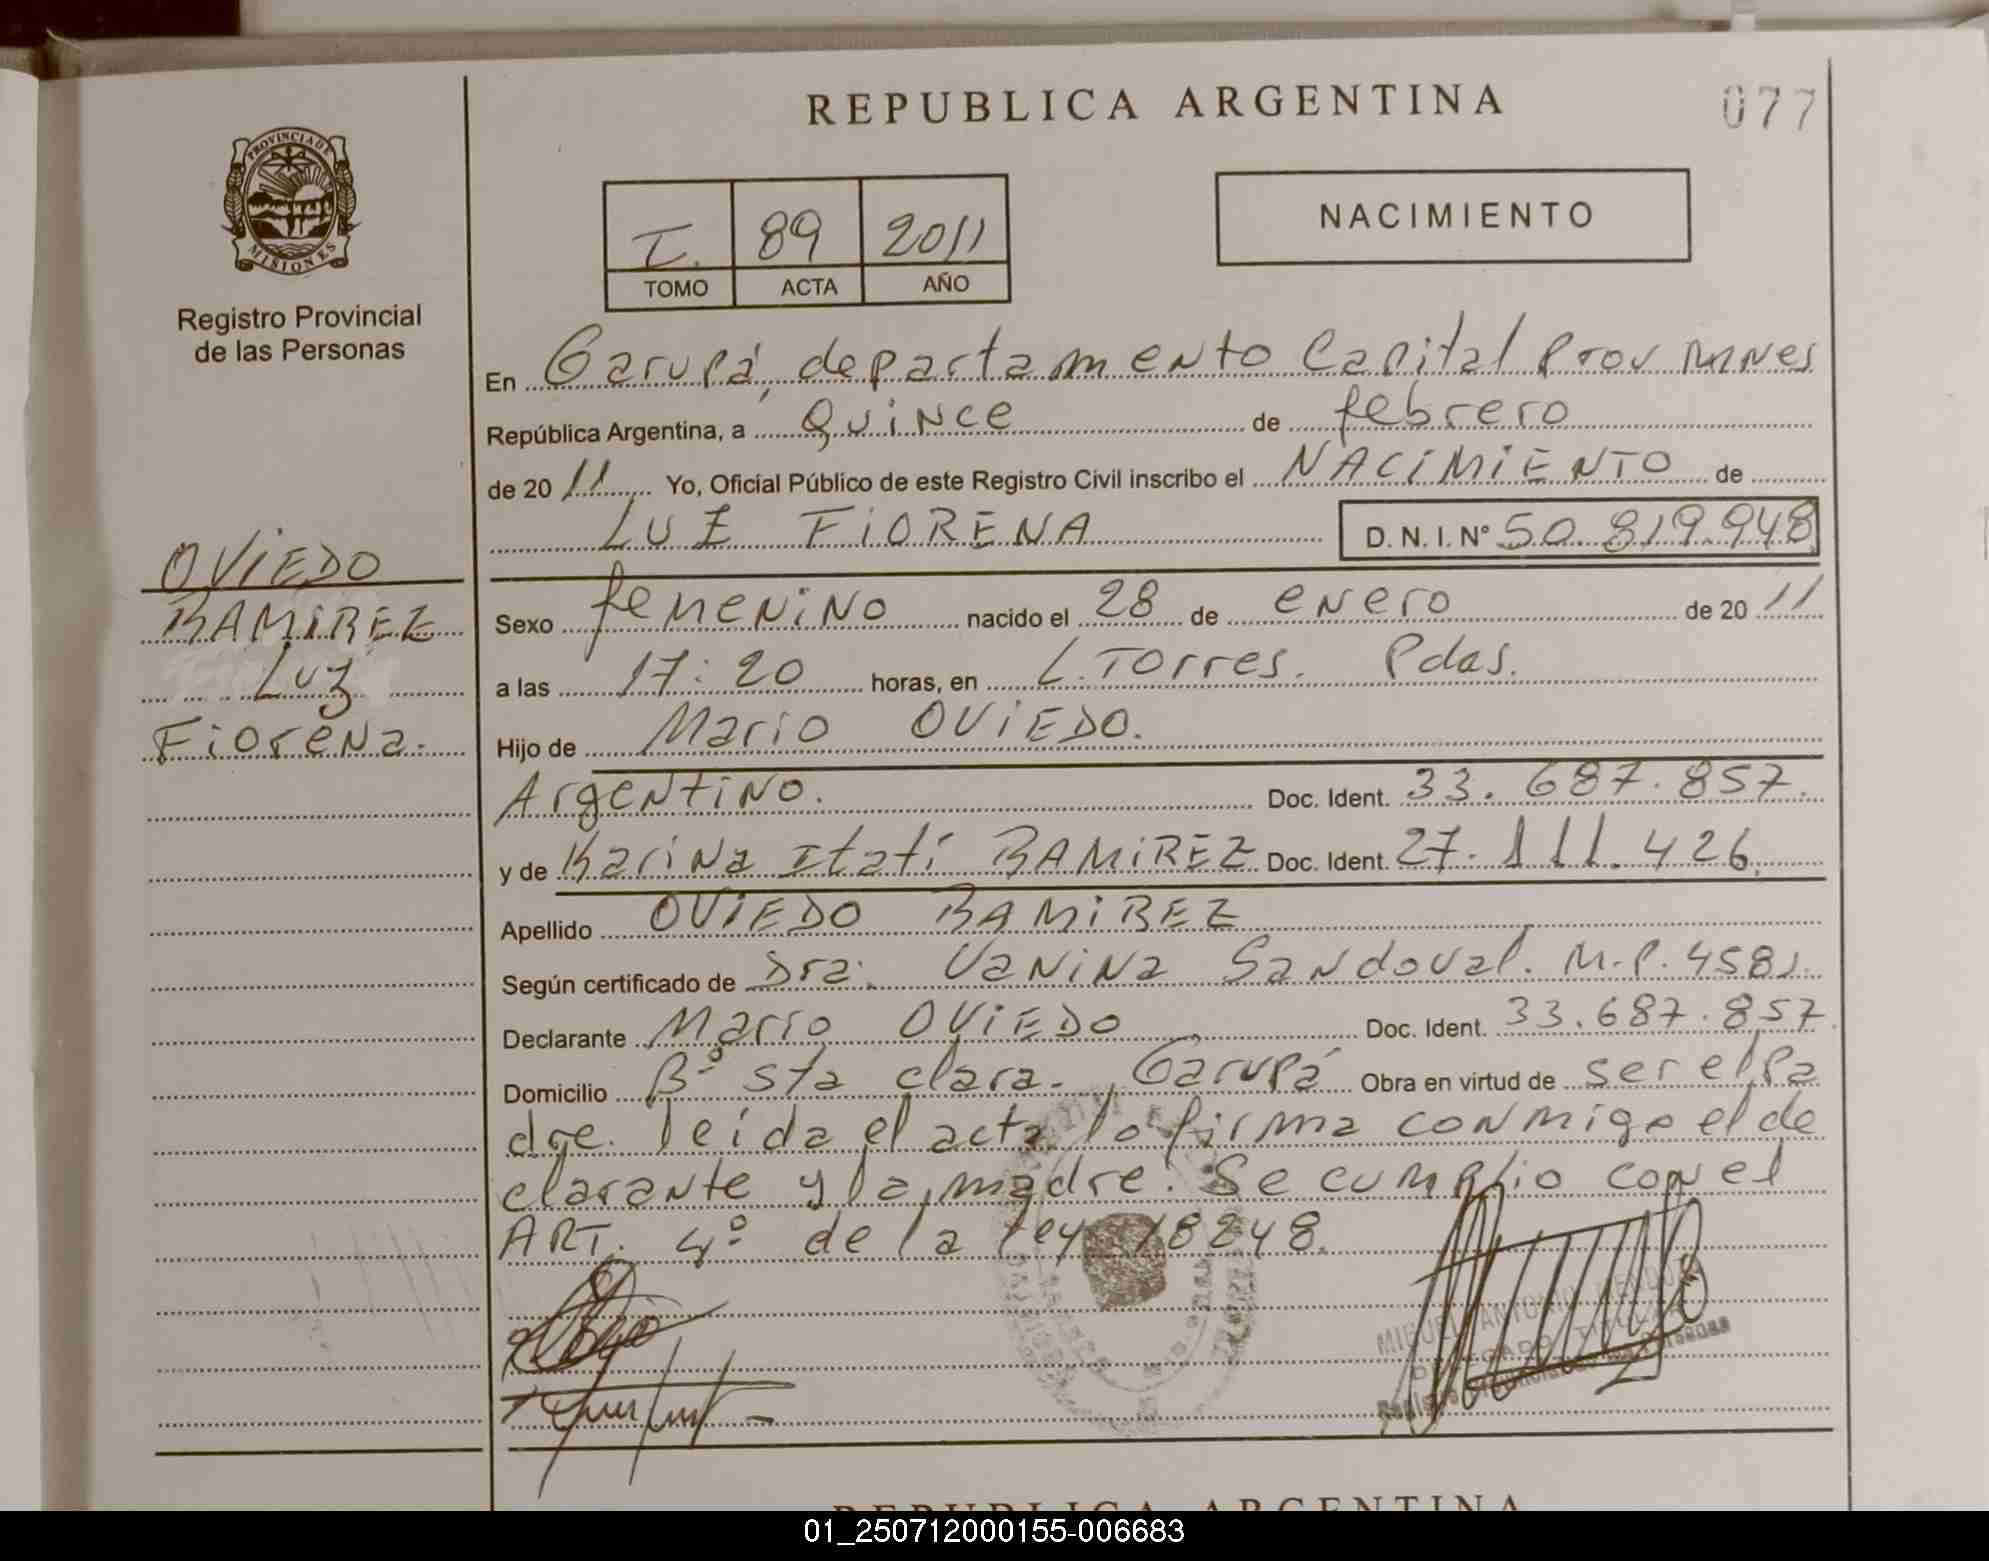 REPUBLICA ARGENTINA
077
PROVINCIA DE
MISIONES
Registro Provincial
de las Personas
I. 89 2011
TOMO ACTA AÑO
NACIMIENTO
En Garupá, departamento Capital Prov
República Argentina, a Quince de febrero
de 2011 Yo, Oficial Público de este Registro Civil inscribo el NACIMIENTO de
LUZ FIORENA D. N. I. Nº 50.819.948
OVIEDO
RAMIREZ
Luz
Fiorena.
Sexo femenino nacido el 28 de enero de 2011
a las 17:20 horas, en L. Torres. Pdas.
Hijo de Mario OVIEDO.
Argentino. Doc. Ident. 33.687.857.
y de Karina Itatí RAMIREZ Doc. Ident. 27.111.426.
Apellido OVIEDO RAMIREZ
Según certificado de Dra. Vanina Sandoval. M.P. 4581.
Declarante Mario OVIEDO Doc. Ident. 33.687.857
Domicilio Bº Sta clara. Garupá Obra en virtud de ser el pa
dre. leída el acta lo firma conmigo el de
clarante y la madre. Se cumplio con el
ART. 4º de la ley 18248.
MIGUEL ANTONIO
REPUBLICA ARGENTINA
01_250712000155-006683